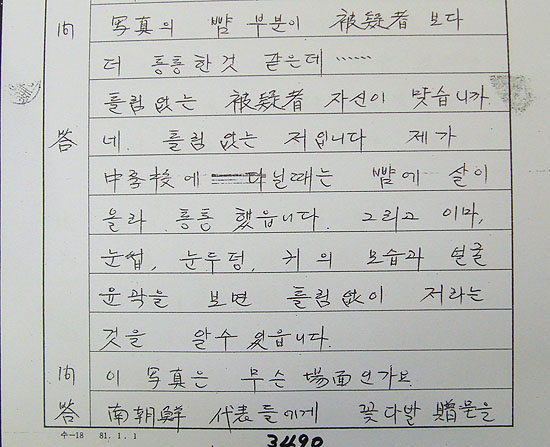 問 写真의 뺨 부분이 被疑者 보다
더 통통한것 같은데……
틀림없는 被疑者 자신이 맞습니까.
答 네. 틀림 없는 저입니다 제가
中學校에 다닐때는 뺨에 살이
올라 통통 했읍니다. 그리고 이마,
눈썹, 눈두덩, 귀의 모습과 얼굴
윤곽을 보면 틀림없이 저라는
것을 알수 있읍니다.
問 이 写真은 무슨 場面인가요.
答 南朝鮮 代表들에게 꽃다발 贈呈을
수-18 81. 1. 1
3490